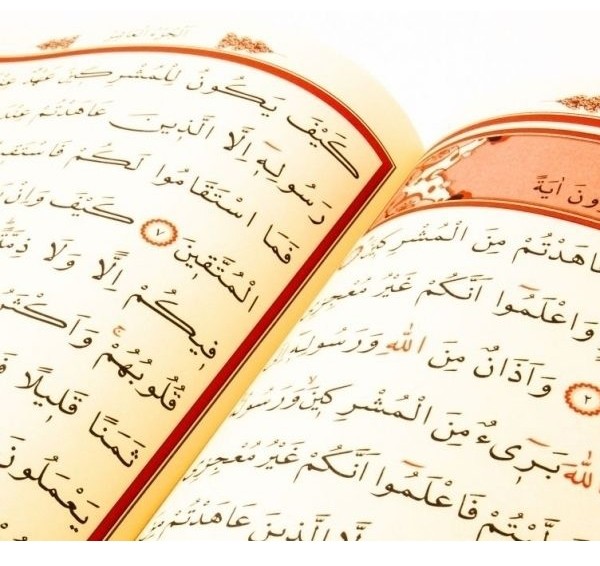 اٰيَةً
عَاهَدْتُمْ مِنَ الْمُشْرِكِينَ
وَاعْلَمُوا اَنَّكُمْ غَيْرُ مُعْجِزِي
٢ وَاَذَانٌ مِنَ اللهِ وَرَسُولِهِ
اللهَ بَرِىءٌ مِنَ الْمُشْرِكِينَ وَرَسُولُهُ
فَاعْلَمُوا اَنَّكُمْ غَيْرُ مُعْجِزِي
الَّذِينَ عَاهَدْتُمْ
الجزء العاشر
كَيْفَ يَكُونُ لِلْمُشْرِكِينَ عَهْدٌ
رَسُولِهِ اِلَّا الَّذِينَ عَاهَدْتُمْ عِنْدَ
فَمَا اسْتَقَامُوا لَكُمْ
الْمُتَّقِينَ ٧ كَيْفَ وَاِنْ
فِيكُمْ اِلًّا وَلَا ذِمَّةً
قُلُوبُهُمْ
ثَمَنًا قَلِيلًا
يَعْمَلُونَ